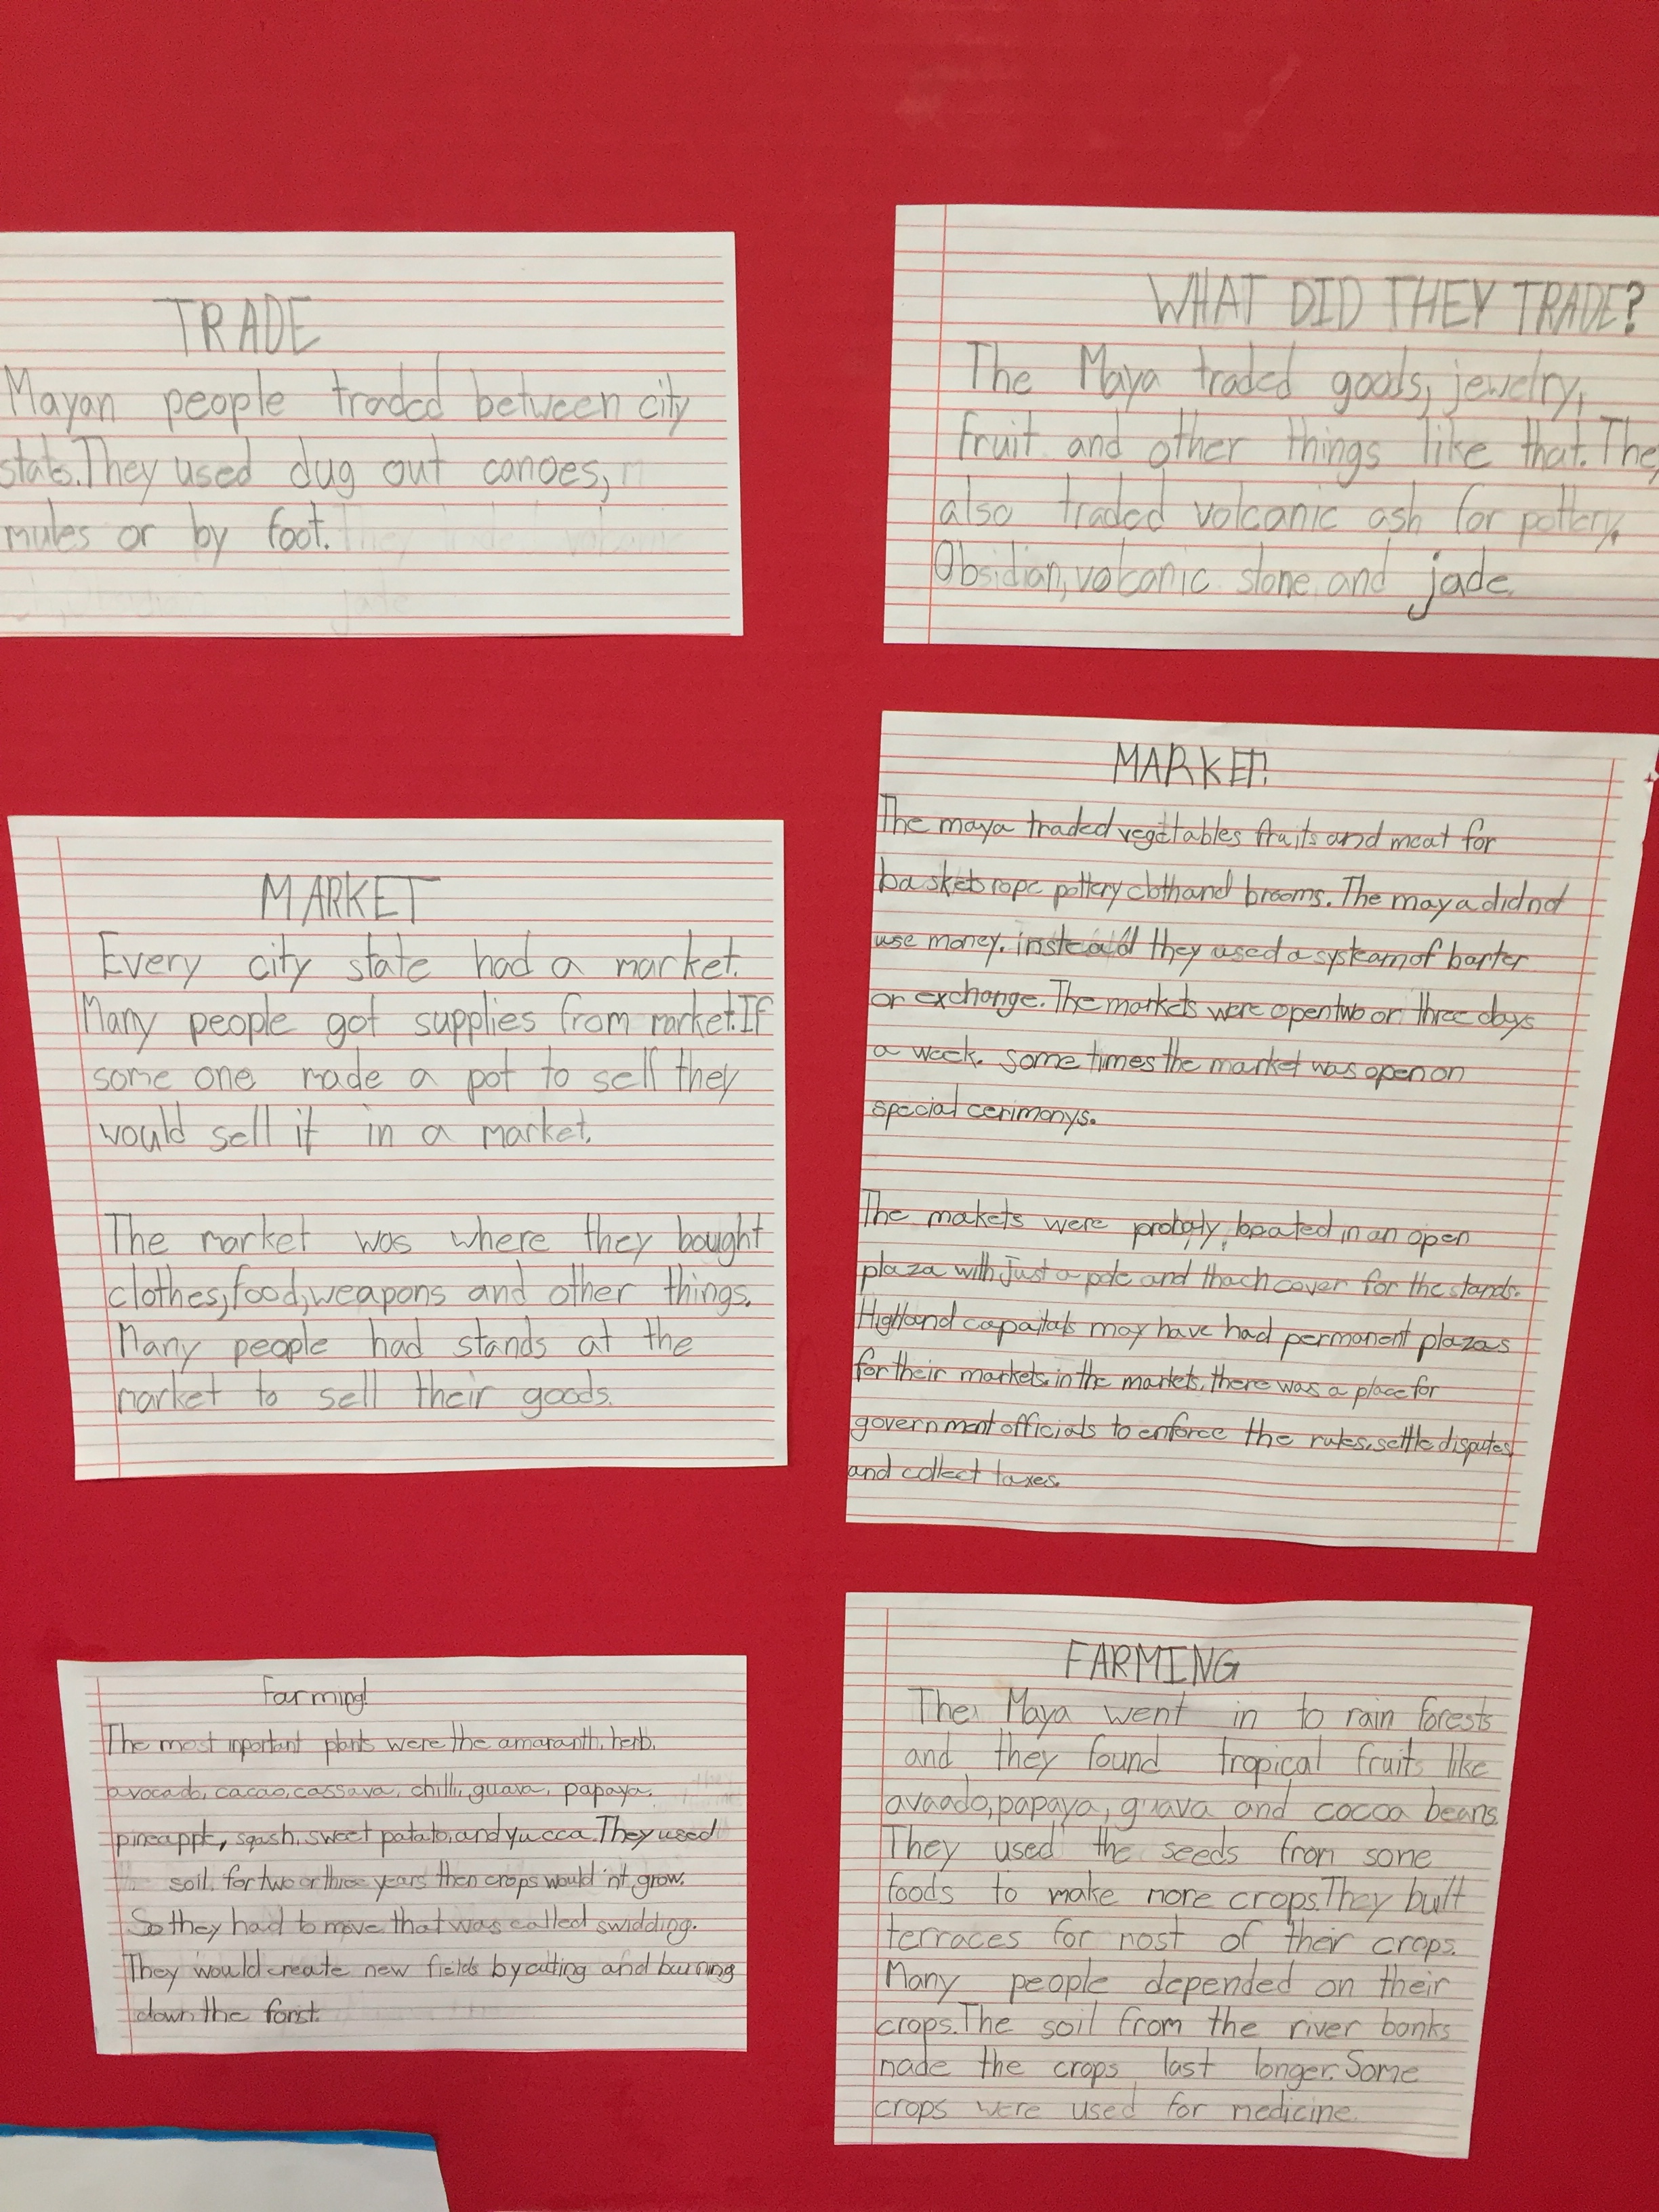 TRADE
Mayan people traded between city
stats. They used dug out canoes,
mules or by foot.
WHAT DID THEY TRADE?
The Maya traded goods, jewelry,
fruit and other things like that. They
also traded volcanic ash for pottery.
Obsidian, volcanic stone and jade.
MARKET
Every city state had a market.
Many people got supplies from market. If
some one made a pot to sell they
would sell it in a market.
The market was where they bought
clothes, food, weapons and other things.
Many people had stands at the
market to sell their goods.
MARKET!
The maya traded vegetables fruits and meat for
baskets rope pottery cloth and brooms. The maya did not
use money. instead they used a system of barter
or exchange. The markets were open two or three days
a week. some times the market was open on
special cerimonys.
The makets were probaly located in an open
plaza with just a pole and thach cover for the stands.
Highland capaitals may have had permanent plazas
for their markets. in the markets, there was a place for
government officials to enforce the rules, settle disputes
and collect taxes.
Farming!
The most inportant plants were the amaranth, herb,
avocado, cacao, cassava, chilli, guava, papaya,
pineapple, sqash, sweet patato, and yucca. They used
soil. for two or three years then crops would'nt grow.
So they had to move that was called swidding.
They would create new fields by cutting and burning
down the forist.
FARMING
The Maya went in to rain forests
and they found tropical fruits like
avaado, papaya, guava and cocoa beans.
They used the seeds from some
foods to make more crops. They built
terraces for most of their crops.
Many people depended on their
crops. The soil from the river banks
made the crops last longer. Some
crops were used for medicine.